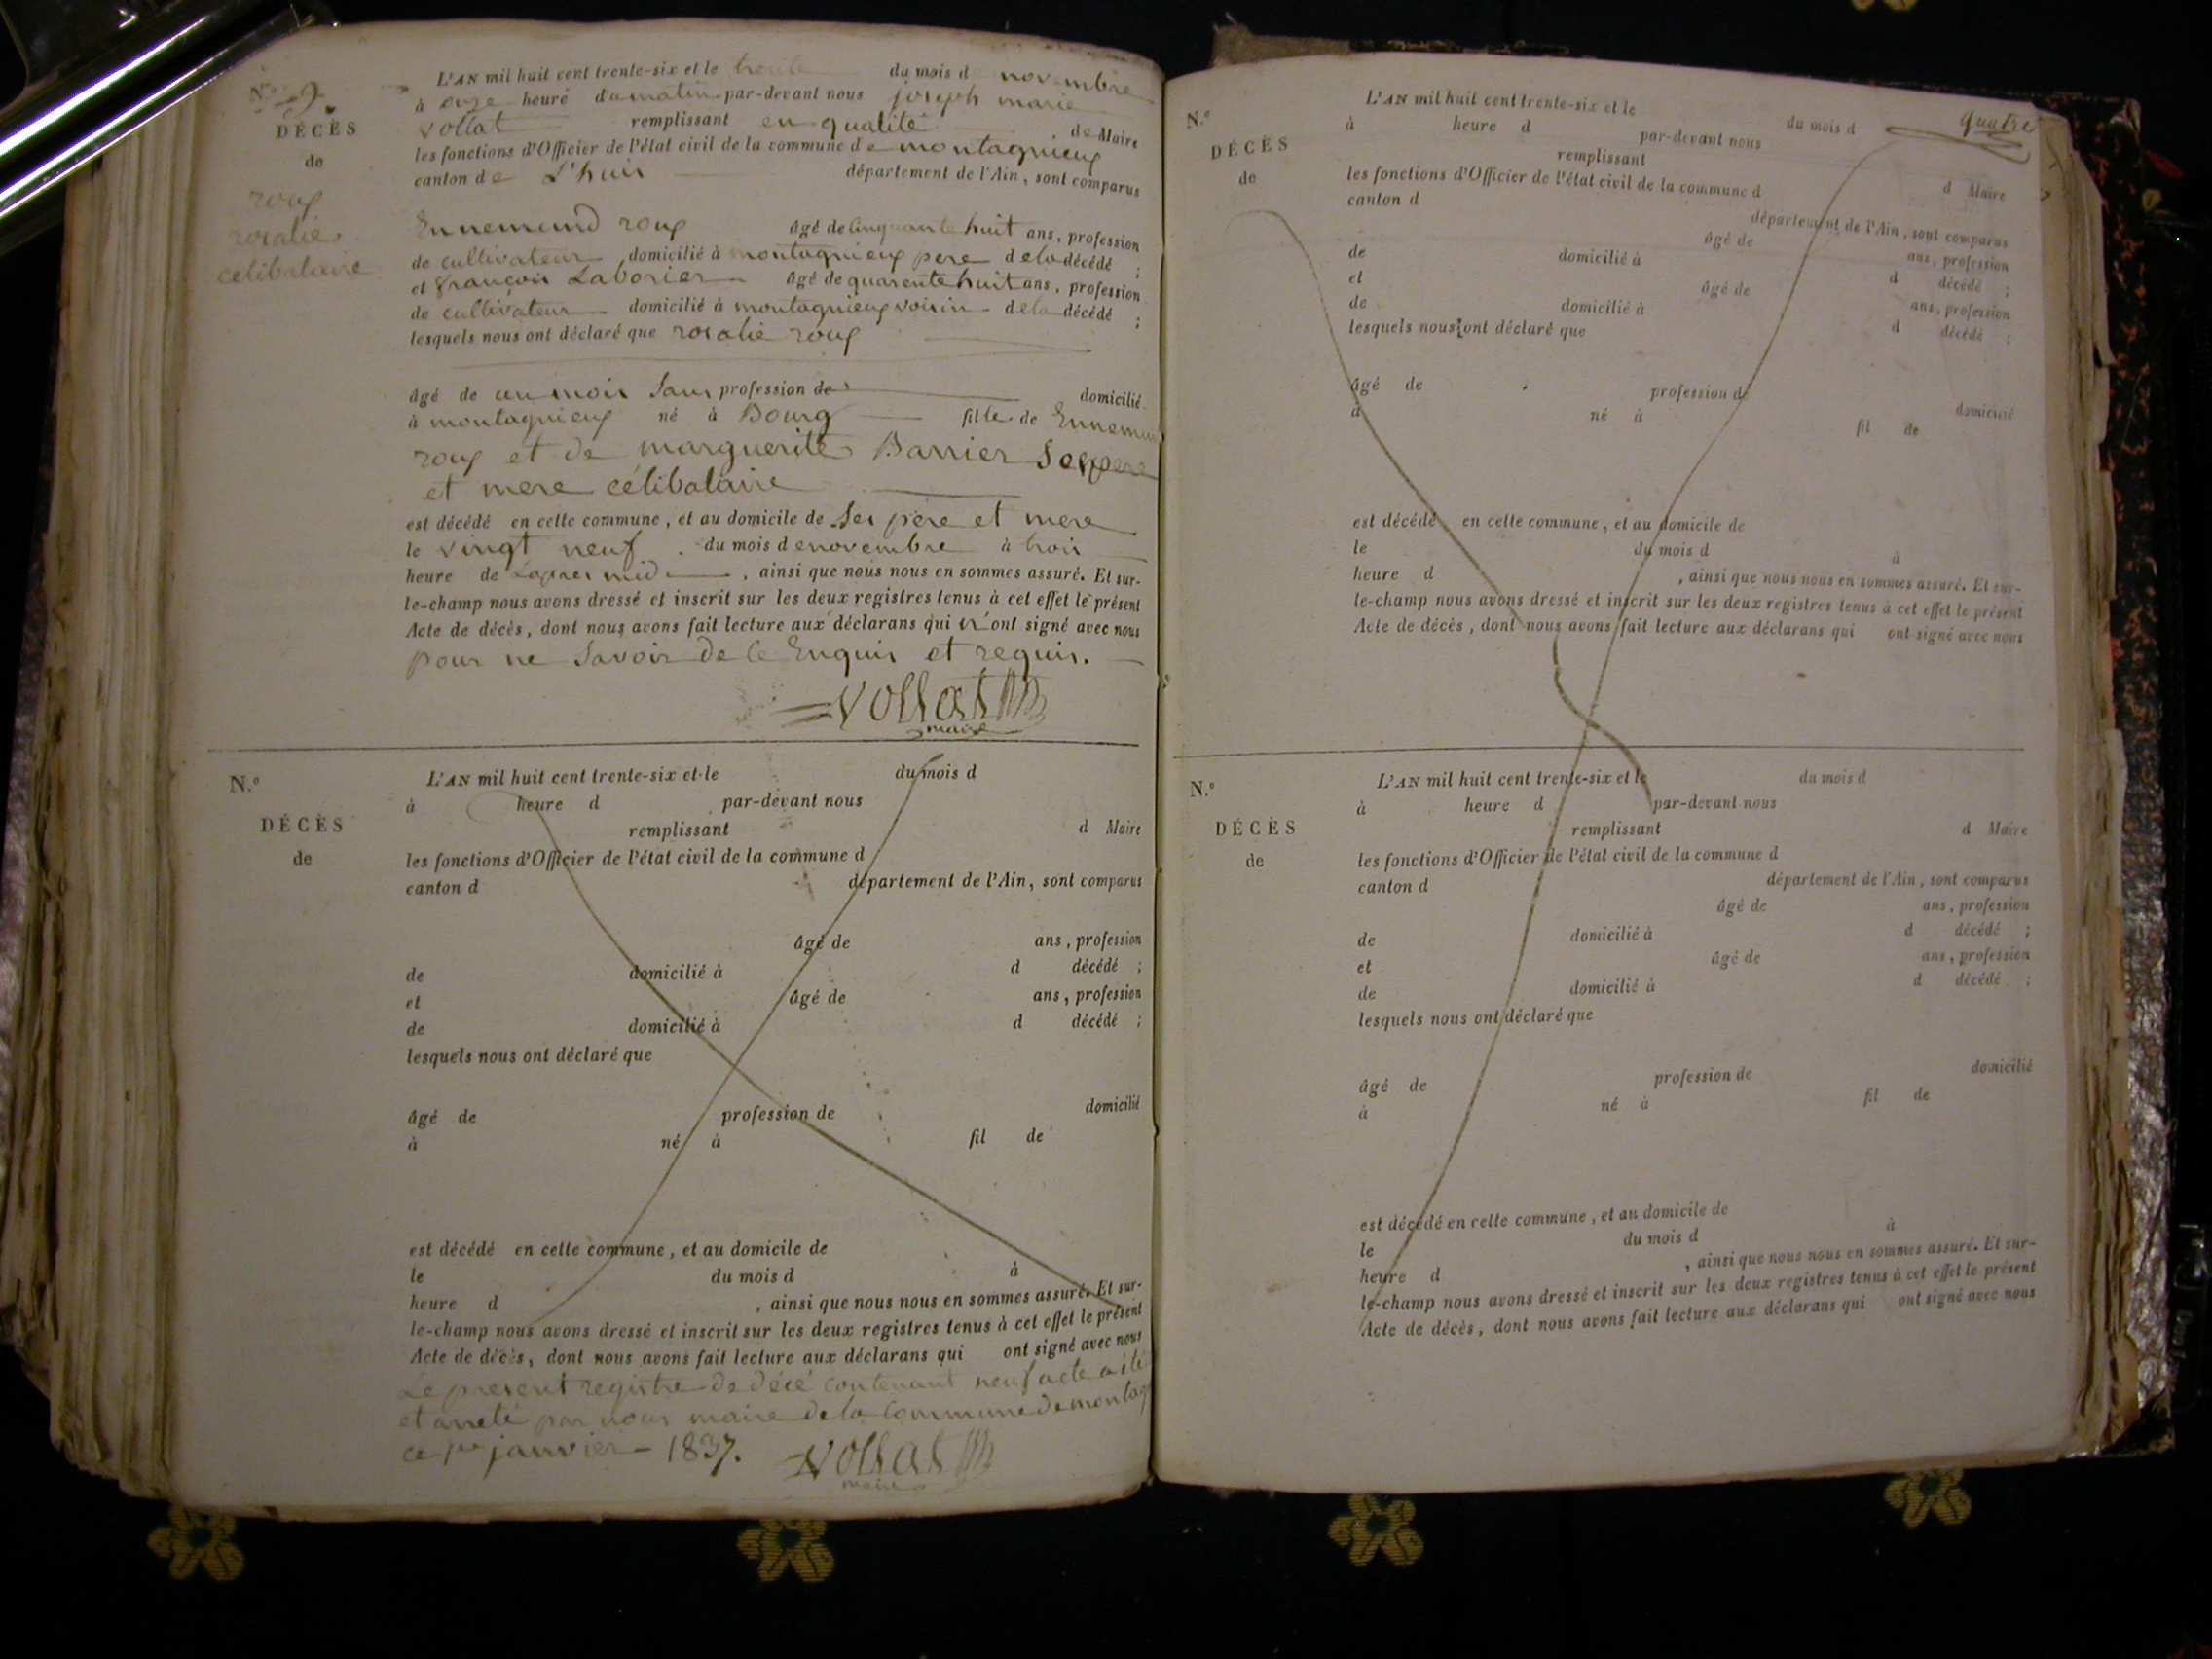 N.º 9.
DÉCÈS
de
roux
rosalie
celibataire
L'AN mil huit cent trente-six et le trente du mois d novembre
à onze heure du matin par-devant nous joseph marie
vollat remplissant en qualité de Maire
les fonctions d'Officier de l'état civil de la commune de montagnieux
canton de L'huis département de l'Ain, sont comparus
Ennemend roux âgé de cinquante huit ans, profession
de cultivateur domicilié à montagnieux pere de la décédé ;
et françois Laborier âgé de quarente huit ans, profession
de cultivateur domicilié à montagnieux voisin de la décédé ;
lesquels nous ont déclaré que rosalie roux
âgé de un mois sans profession de domicilié
à montagnieux né à Bourg fille de Ennemend
roux et de marguerite Barrier ses pere
et mere célibataire
est décédé en cette commune, et au domicile de ses père et mere
le vingt neuf du mois de novembre à trois
heure de Lapres midi, ainsi que nous nous en sommes assuré. Et sur-
le-champ nous avons dressé et inscrit sur les deux registres tenus à cet effet le présent
Acte de décès, dont nous avons fait lecture aux déclarans qui n'ont signé avec nous
pour ne savoir de ce Enquis et requis.
vollat
maire
N.º
DÉCÈS
de
L'AN mil huit cent trente-six et le du mois d
à heure d par-devant nous
remplissant d Maire
les fonctions d'Officier de l'état civil de la commune d
canton d département de l'Ain, sont comparus
âgé de ans, profession
de domicilié à d décédé ;
et âgé de ans, profession
de domicilié à d décédé ;
lesquels nous ont déclaré que
âgé de profession de domicilié
à né à fil de
est décédé en cette commune, et au domicile de
le du mois d à
heure d , ainsi que nous nous en sommes assuré. Et sur-
le-champ nous avons dressé et inscrit sur les deux registres tenus à cet effet le présent
Acte de décès, dont nous avons fait lecture aux déclarans qui ont signé avec nous
Le present registre de décé contenant neuf acte a été
et arreté par nous maire de la Commune de montag
ce 1er janvier 1837. vollat
maire
quatre
N.º
DÉCÈS
de
L'AN mil huit cent trente-six et le du mois d
à heure d par-devant nous
remplissant d Maire
les fonctions d'Officier de l'état civil de la commune d
canton d département de l'Ain, sont comparus
âgé de ans, profession
de domicilié à d décédé ;
et âgé de ans, profession
de domicilié à d décédé ;
lesquels nous ont déclaré que
âgé de profession de domicilié
à né à fil de
est décédé en cette commune, et au domicile de
le du mois d à
heure d , ainsi que nous nous en sommes assuré. Et sur-
le-champ nous avons dressé et inscrit sur les deux registres tenus à cet effet le présent
Acte de décès, dont nous avons fait lecture aux déclarans qui ont signé avec nous
N.º
DÉCÈS
de
L'AN mil huit cent trente-six et le du mois d
à heure d par-devant nous
remplissant d Maire
les fonctions d'Officier de l'état civil de la commune d
canton d département de l'Ain, sont comparus
âgé de ans, profession
de domicilié à d décédé ;
et âgé de ans, profession
de domicilié à d décédé ;
lesquels nous ont déclaré que
âgé de profession de domicilié
à né à fil de
est décédé en cette commune, et au domicile de
le du mois d à
heure d , ainsi que nous nous en sommes assuré. Et sur-
le-champ nous avons dressé et inscrit sur les deux registres tenus à cet effet le présent
Acte de décès, dont nous avons fait lecture aux déclarans qui ont signé avec nous